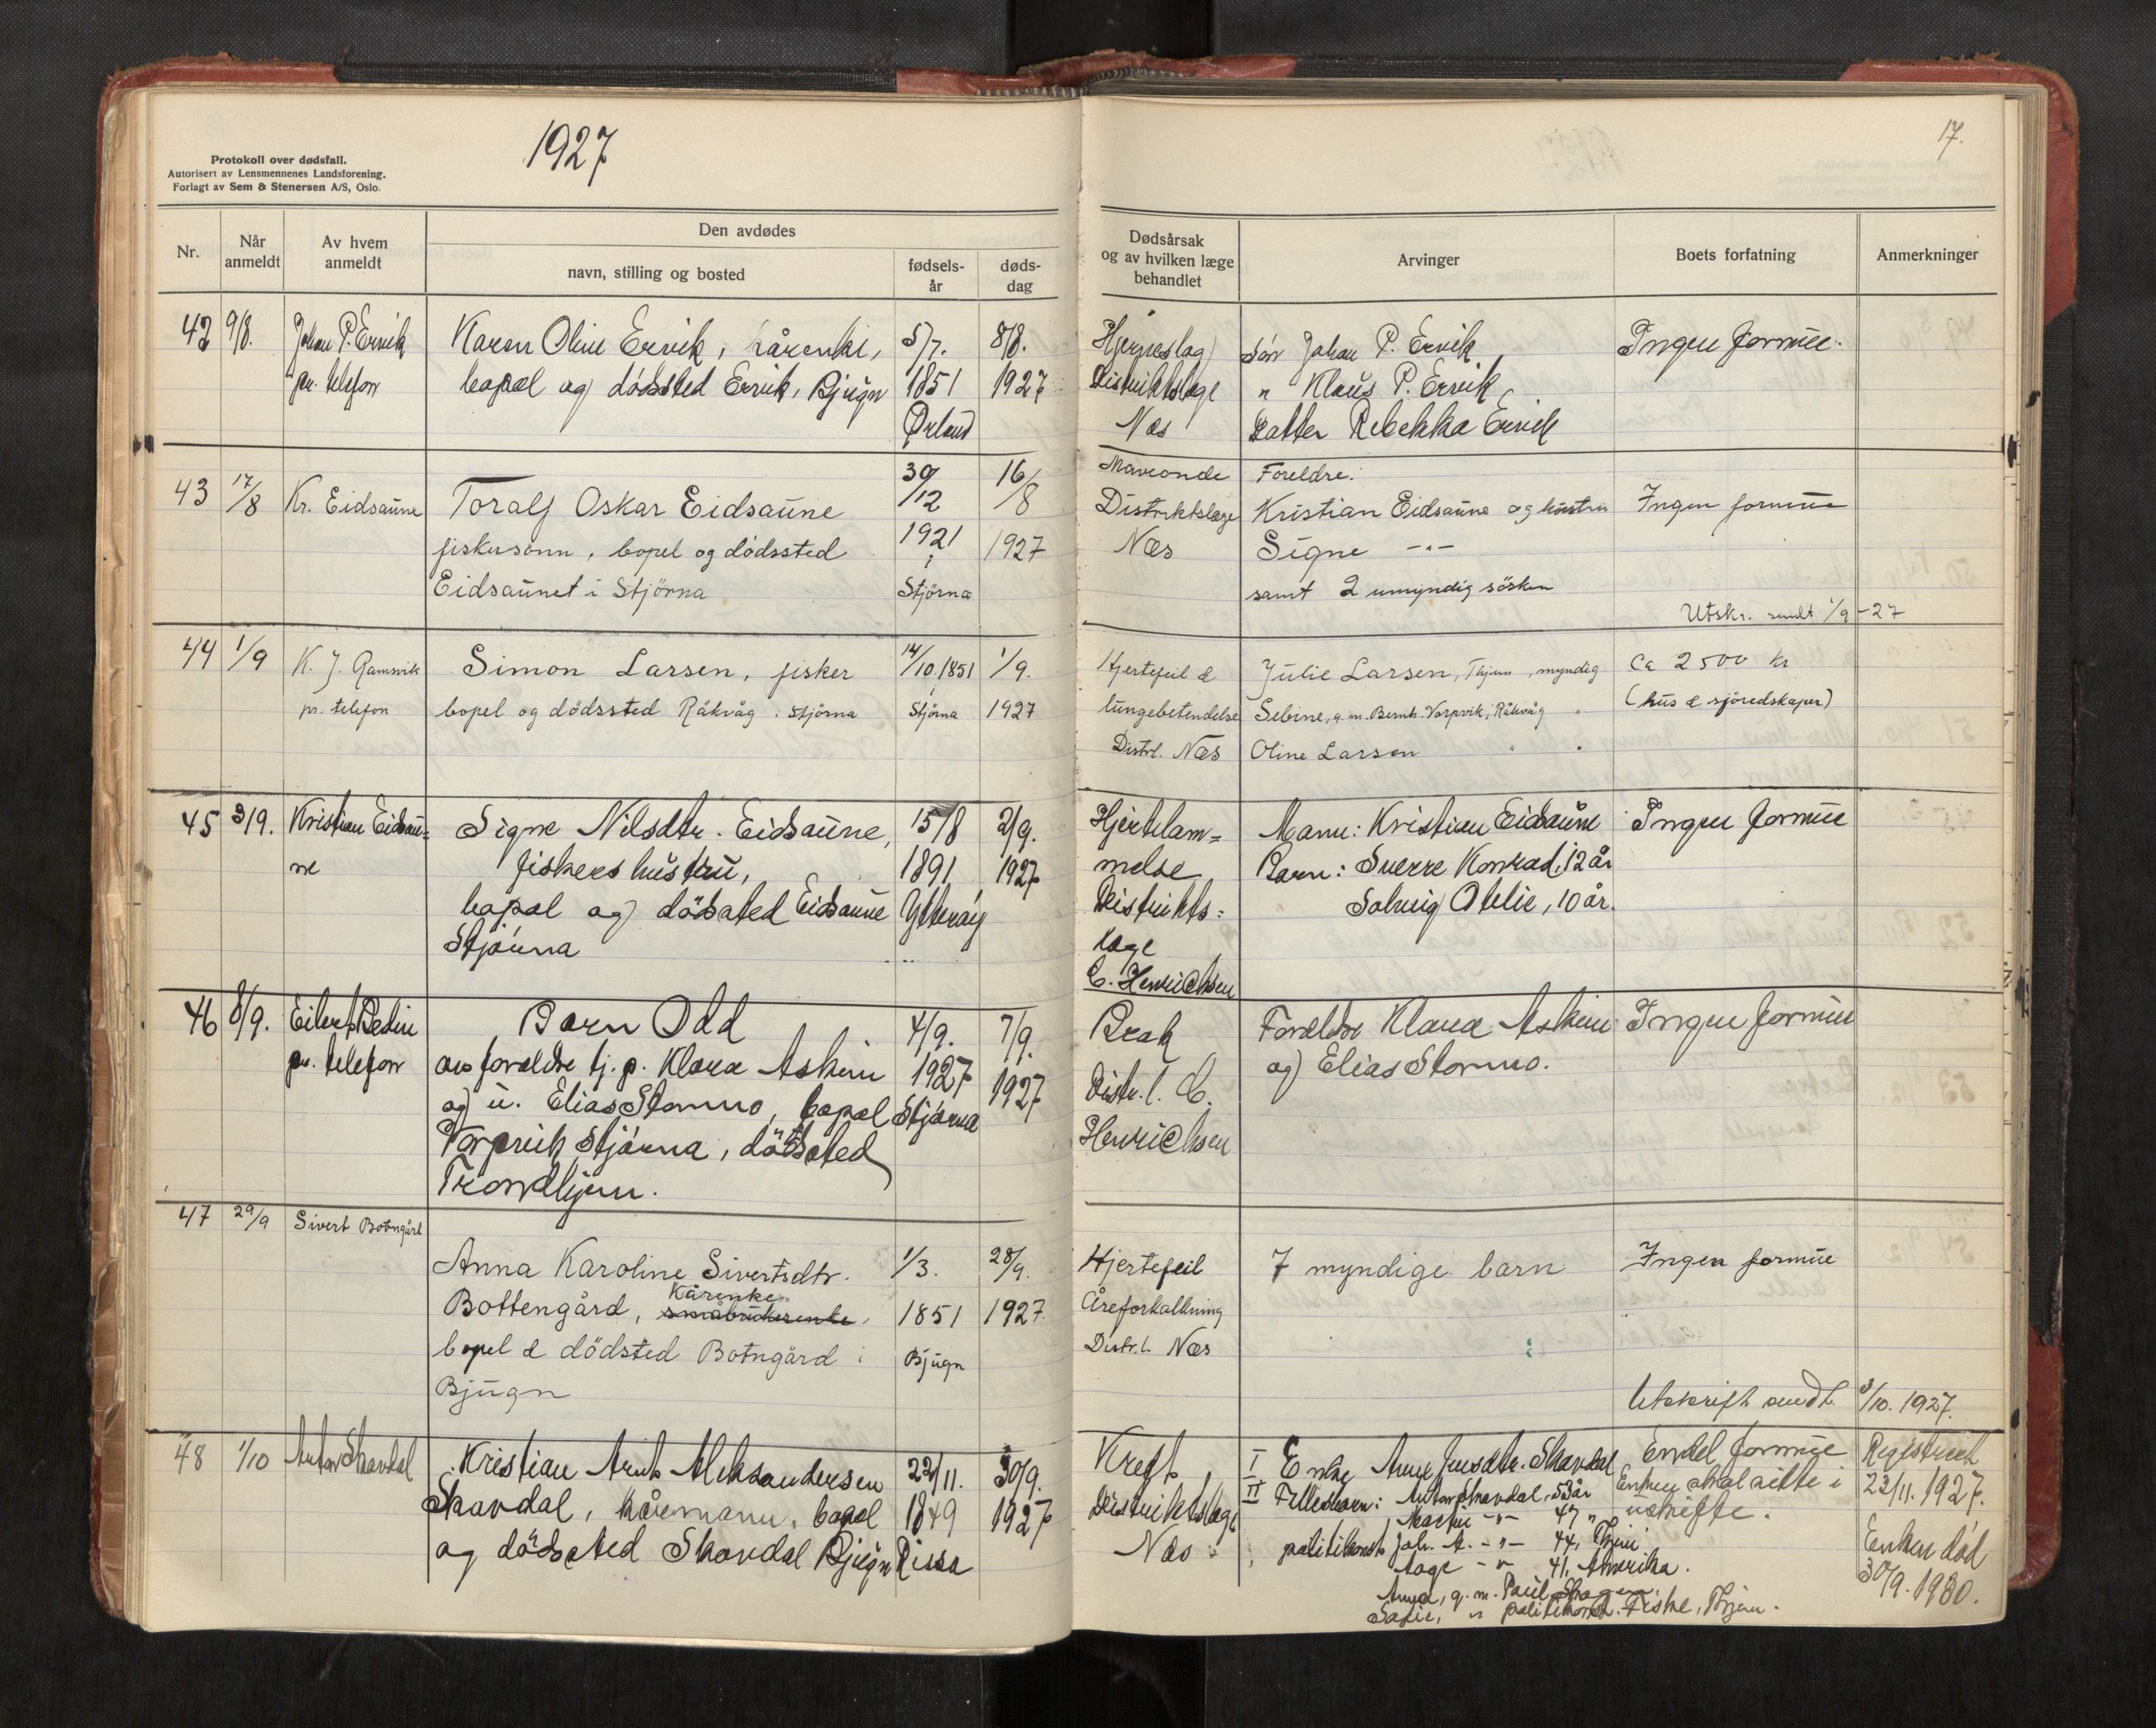 1927
17.
Protokoll over dødsfall.
Autorisert av Lensmennenes Landsforening.
Forlagt av Sem & Stenersen A/S, Oslo.
Nr.
Når anmeldt
Av hvem anmeldt
Den avdødes
navn, stilling og bosted
fødsels-år
døds-dag
Dødsårsak og av hvilken læge behandlet
Arvinger
Boets forfatning
Anmerkninger
42 9/8. Johan P. Ervik Karen Oline Ervik, kårenke, 5/7. 8/8. Hjerneslag Søn Johan P. Ervik Ingen formue.
pr. telefon bopæl og dödssted Ervik, Bjugn 1851 1927 Distriktslæge " Klaus P. Ervik
Ørland Næs Datter Rebekka Ervik
43 17/8 Kr. Eidsaune Toralf Oskar Eidsaune 30/12 16/8 Maveonde Foreldre:
Distriktslæge Kristian Eidsaune og hustru Ingen formue
fiskersönn, bopel og dödssted 1921 1927 Næs Signe -"-
Eidsaunet i Stjörna i Stjörna samt 2 umyndig sösken
Utskr. sendt 1/9-27
44 1/9 K. J. Ramsvik Simon Larsen, fisker 14/10.1851 1/9. Hjertefeil & Julie Larsen, Thjem, myndig Ca 2500 kr
pr. telefon bopel og dödssted Råkvåg i Stjörna i Stjörna 1927 lungebetendelse Sebine, g.m. Bernh. Vorpvik, Råkvåg " (hus & sjöredskaper)
Distrl. Næs Oline Larsen " "
45 3/9. Kristian Eidsau= Signe Nilsdtr. Eidsaune, 15/8 2/9. Hjertelam= Mann: Kristian Eidsaune Ingen formue
ne fiskers hustru, 1891 1927 melse Barn: Sverre Konrad, 12 år
bopæl og dödssted Eidsaune Ytterøy Distrikts= Solveig Otelie, 10 år.
Stjörna læge
C. Henrichsen
46 8/9. Eilert Bedin Barn Odd 4/9. 7/9. Brok Foreldre Klara Askim Ingen formue
pr. telefon av foreldre tj. p. Klara Askim 1927 1927 Distr.l. C. og Elias Stormo.
og u. Elias Stormo, bopæl Stjörna Henrichsen
Vorpvik Stjörna, dödssted
Trondhjem.
47 29/9 Sivert Botngård
Anna Karoline Sivertsdtr. 1/3. 28/9. Hjertefeil 7 myndige barn Ingen formue
Kårenke
Bottengård, småbrukerenke, 1851 1927. Åreforkalkning
bopel & dödsted Botngård i Bjugn Distr.l. Næs
Bjugn
Utskrift sendt 3/10. 1927.
48 1/10 Anton Skavdal Kristian Arnt Aleksandersen 22/11. 30/9. Kreft I Enke Anne Jensdtr. Skavdal Endel formue Registrert
Skavdal, kårmann, bopæl 1849 1927 Distriktslæge II Fellesbarn: Anton Skavdal, 53 år Enken skal sitte i 23/11. 1927.
og dödssted Skavdal Bjugn Rissa Næs Martin -"- 47 " uskifte.
politikonst. Joh. A. -"- 44, Thjem Enken död
Aage -"- 41, Amerika. 30/9. 1930.
Anna, g.m. Paul Skagen
Sofie, " politikonst. Fiske, Thjem.